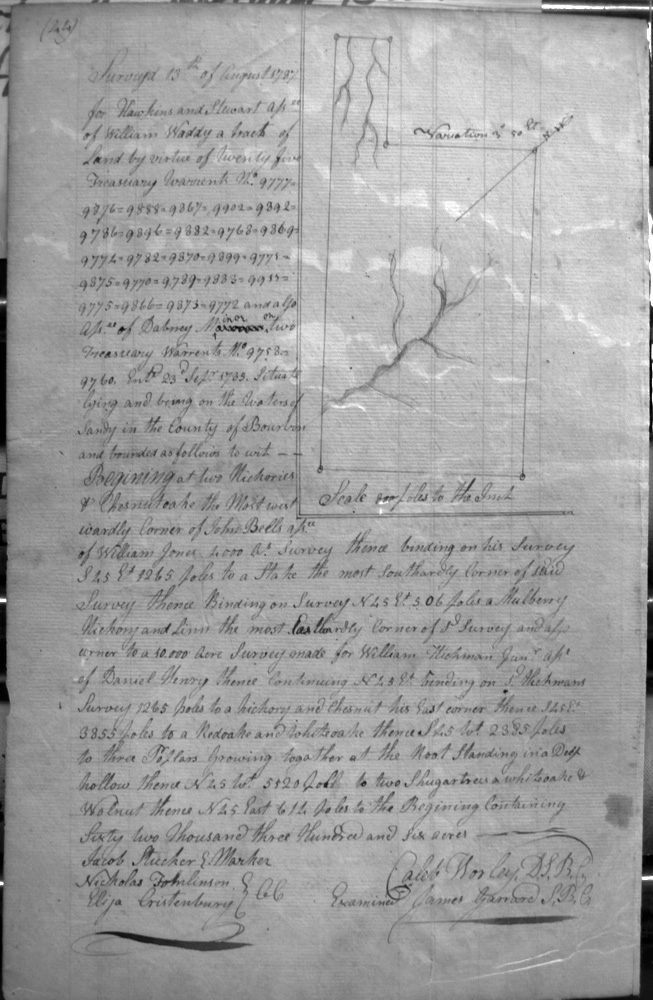 (44)
Survey'd 13th of August 1787
for Hawkins and Stewart assee
of William Waddy a track of
Land by virtue of Twenty five
Treasuary Warrents No. 9777=
9876=9888=9867=9902=9892=
9786=9896=9882=9768=9869=
9774=9782=9870=9899=9771=
9875=9770=9789=9883=
9775=9866=9873=9772 and also
Assee of Dabney Minor on two
Treasuary Warrents No. 9758=
9760. Entd 23d Sepr 1783. Situate
lying and being on the Waters of
Sandy in the County of Bourbon
and bounded as follows to wit - -
Begining at two Hickories
& Chesnutoake the Most west
wardly Corner of John Bells assee
of William Jones 4000 As Survey thence binding on his Survey
S45 Et 1265 poles to a Stake the most Southardly Corner of said
Survey thence Binding on Survey N45 Et 506 poles a Mulberry
Hickory and Linn the most Eastwardly Corner of sd Survey and also
corner to a 10.000 Acre Survey made for William Hickman Junr asse
of Daniel Henry thence Continuing N45 Et binding on sd Hickmans
Survey 1265 poles to a hickory and Chesnut his East corner thence S45 Et
3855 poles to a Redoake and Whiteoake thence S45 Wt 2385 poles
to three Poplars Growing togather at the Root Standing in a Deep
hollow thence N45 Wt 5120 poles to two Shugartrees a whiteoake &
Walnut thence N45 East 614 poles to the Begining Containing
Sixty two Thousand three Hundred and Six acres
Jacob Stucher Marker
Nicholas Tomlinson
Elija Cristenbury } CC
Caleb Worley, D.S.B.C.
Examined James Garrard S.B.C.
Variation 3° 50 Et
Scale 800 poles to the Inch